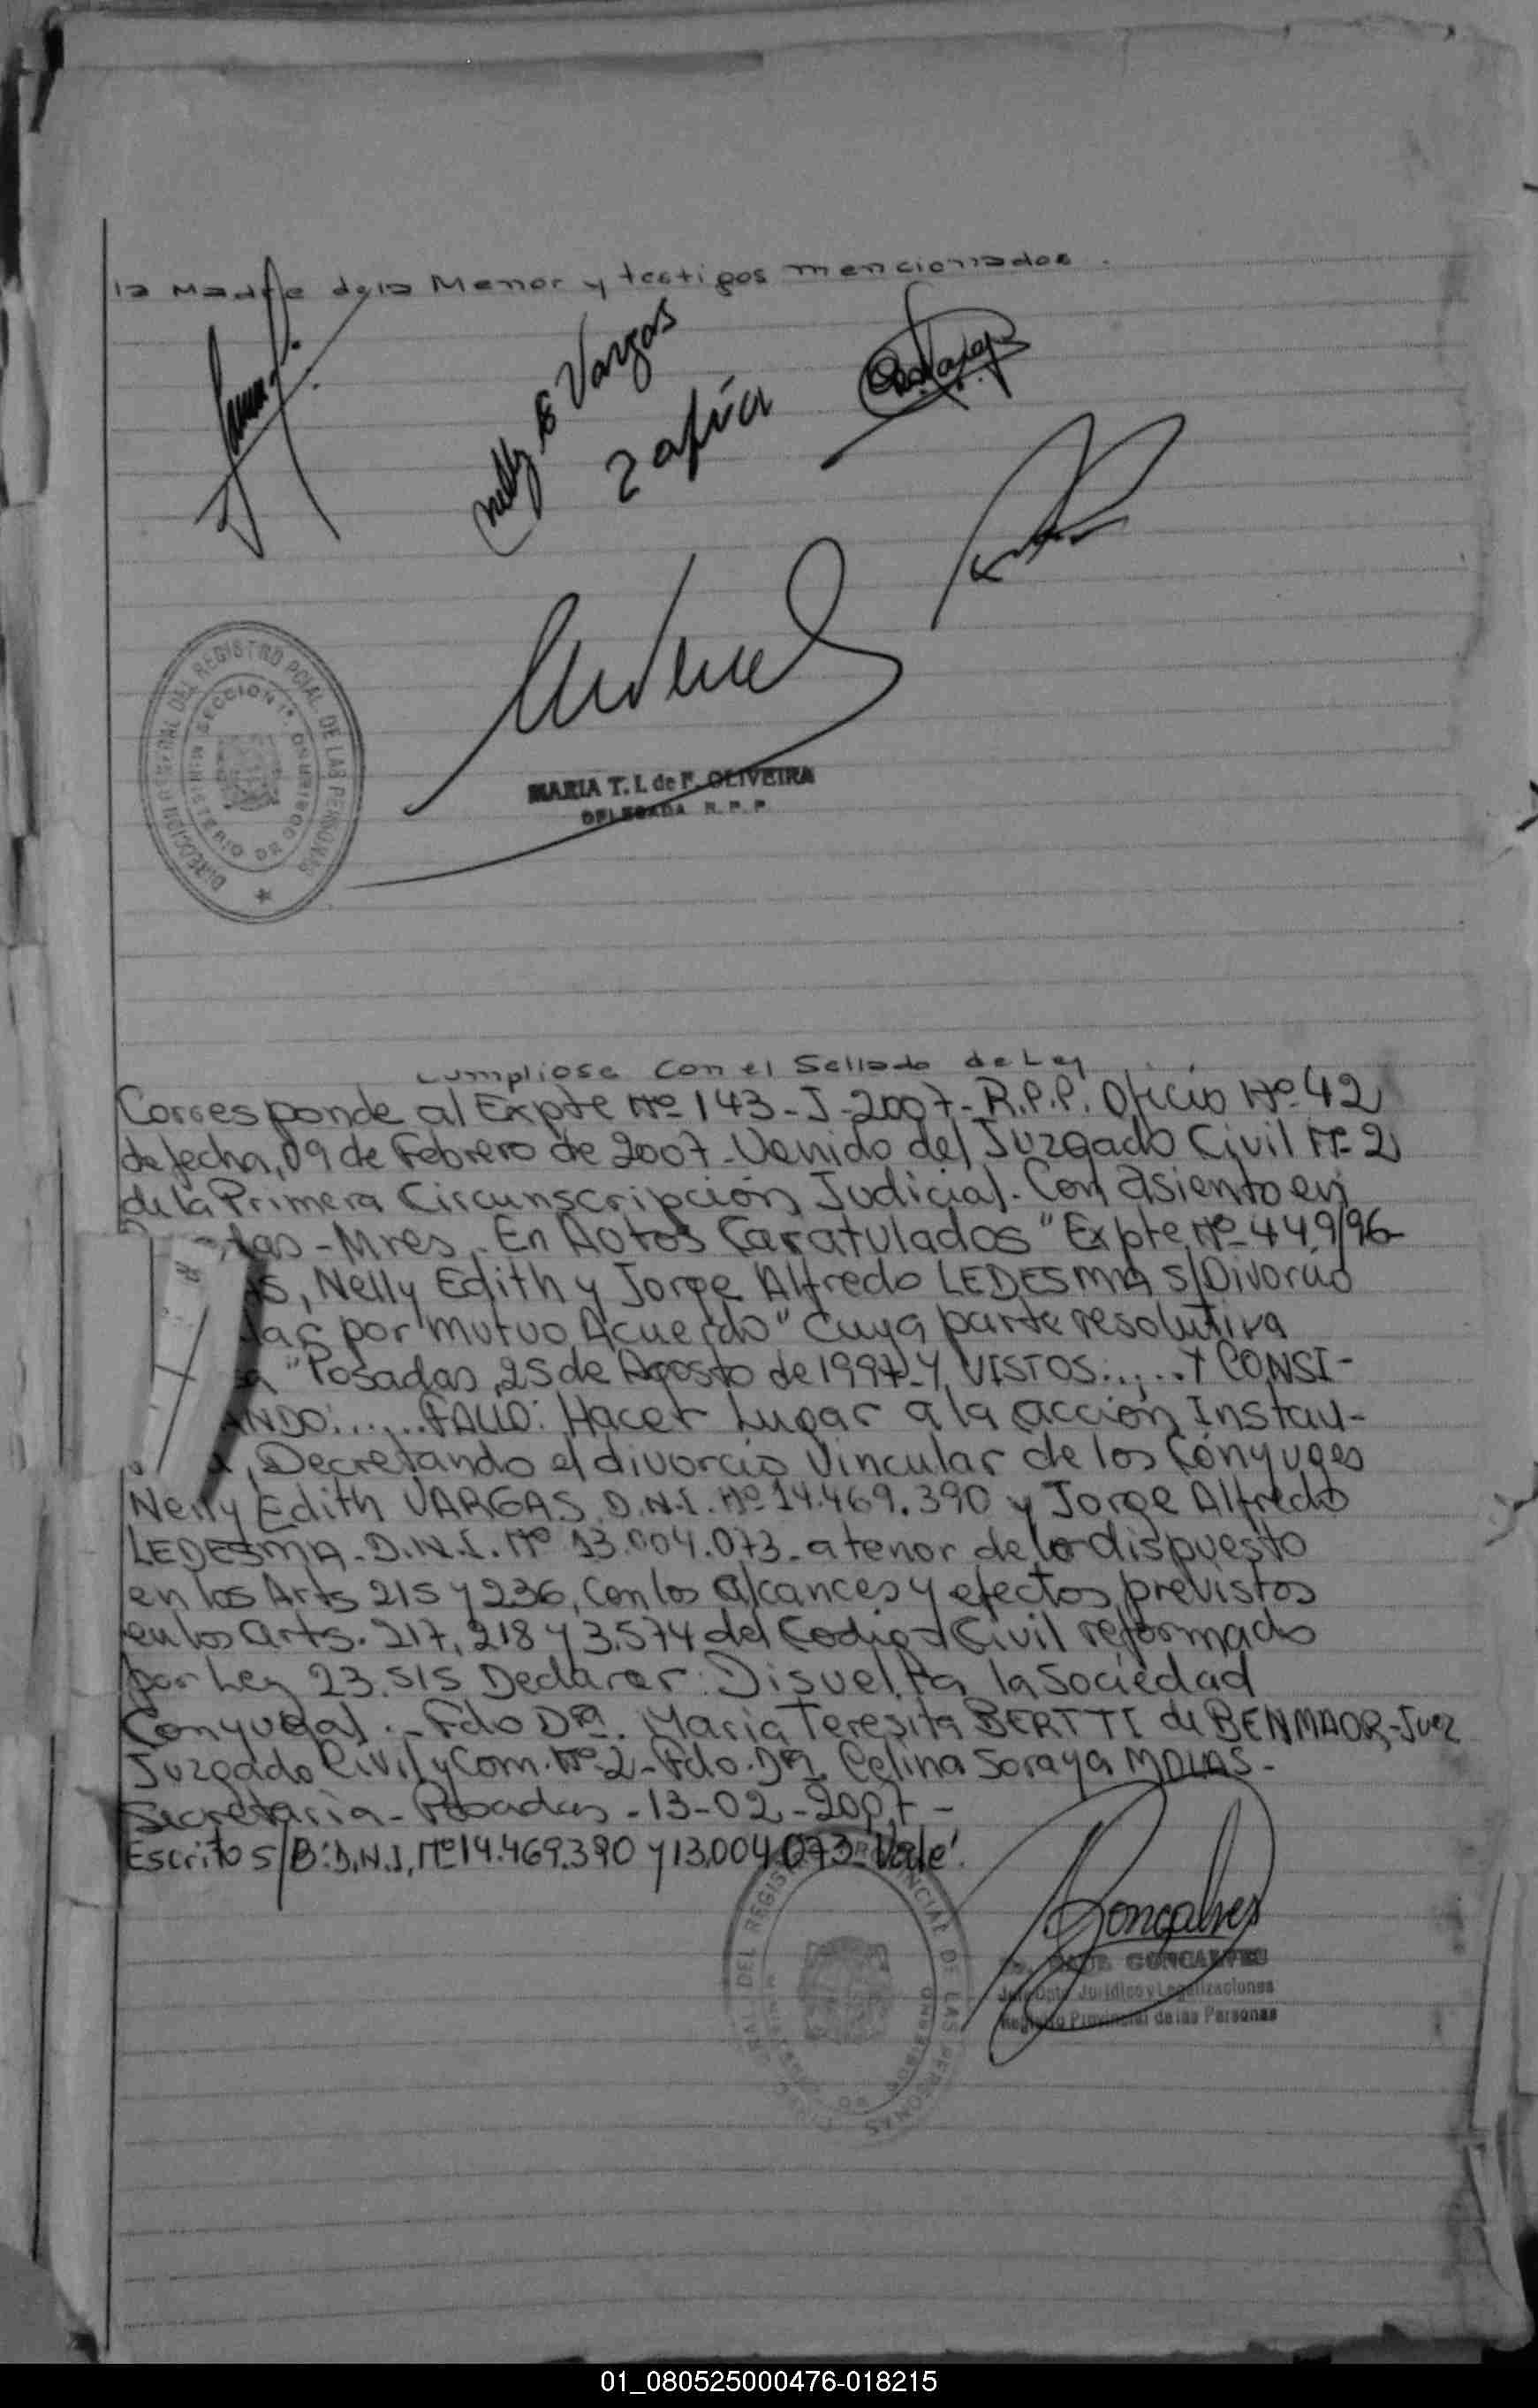 la Madre dela Menor y testigos mencionados.
Nelly E Vargas
Zafía
DIRECCION GENERAL DEL REGISTRO PCIAL DE LAS PERSONAS
SECCION 1ª
MINISTERIO DE GOBIERNO
MARIA T. I. de F. OLIVEIRA
DELEGADA R. P. P.
cumpliose con el Sellado de Ley
Corresponde al Expte Nº 143-J-2007-R.P.P. Oficio Nº 42
de fecha, 09 de Febrero de 2007-Venido del Juzgado Civil Nº 2
de la Primera Circunscripción Judicial. Con asiento en
das-Mnes. En Autos Caratulados "Expte Nº 449/96-
AS, Nelly Edith y Jorge Alfredo LEDESMA S/Divorcio
lar por mutuo Acuerdo" Cuya parte resolutiva
"Posadas, 25 de Agosto de 1997-Y VISTOS:.....Y CONSI-
ANDO:.....FALLO: Hacer Lugar a la acción Instau-
, Decretando el divorcio Vincular de los Cónyuges
Nelly Edith VARGAS D.N.I. Nº 14.469.390 y Jorge Alfredo
LEDESMA-D.N.I. Nº 13.004.073-a tenor de lo dispuesto
en los Arts 215 y 236, Con los alcances y efectos previstos
en los arts. 217, 218 y 3.574 del Codigo Civil reformado
por Ley 23.515 Declarar: Disuelta la Sociedad
Conyugal.-Fdo Dra. Maria Teresita BERTTI de BENMAOR-Juez
Juzgado Civil y Com. Nº 2-Fdo. Dra. Celina Soraya MOLAS-
Secretaria-Posadas-13-02-2007-
Escrito S/B: D.N.I. Nº 14.469.390 y 13.004.073-Vale!
DEL REGISTRO PROVINCIAL DE LAS PERSONAS
Gonçalves
GONCALVES
Jefe Dpto Jurídico y Legalizaciones
Registro Provincial de las Personas
01_080525000476-018215